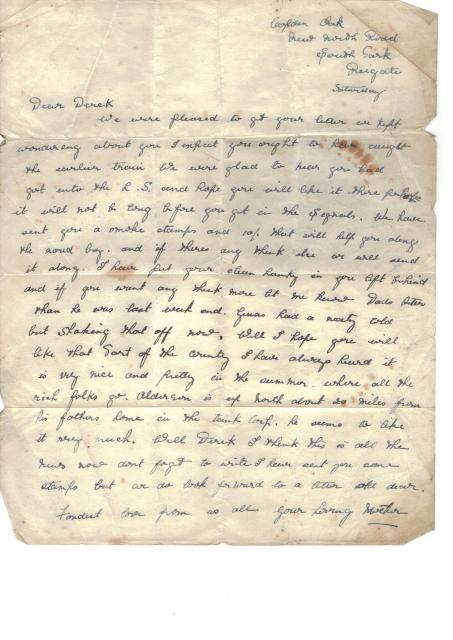 New North Road
South Park
Reigate
Saturday
Dear Derek
We were pleased to get your letter we kept
wondering about you I expect you ought to have caught
the earlier train We were glad to hear you had
got into the and hope you will like it there
it will not be long before you get in the Signals. We have
sent you a smoke stamps and 10/- that will help you along
the road boy. and if theres any think else we will send
it along. I have put your clean hanky in you left behind
and if you want any think more let me know Dads
than he was last week end. had a nasty cold
but shaking that off now. Well I hope you will
like that Part of the Country I have always heard it
is very nice and pretty in the summer. where all the
rich folks go. is up North about 20 miles from
his fathers home in the tank Corp. he seems to like
it very much. Well Derek I think this is all the
news now dont forget to write I have sent you some
stamps but we do look forward to a letter dear.
Fondest love from us all your loving Mother